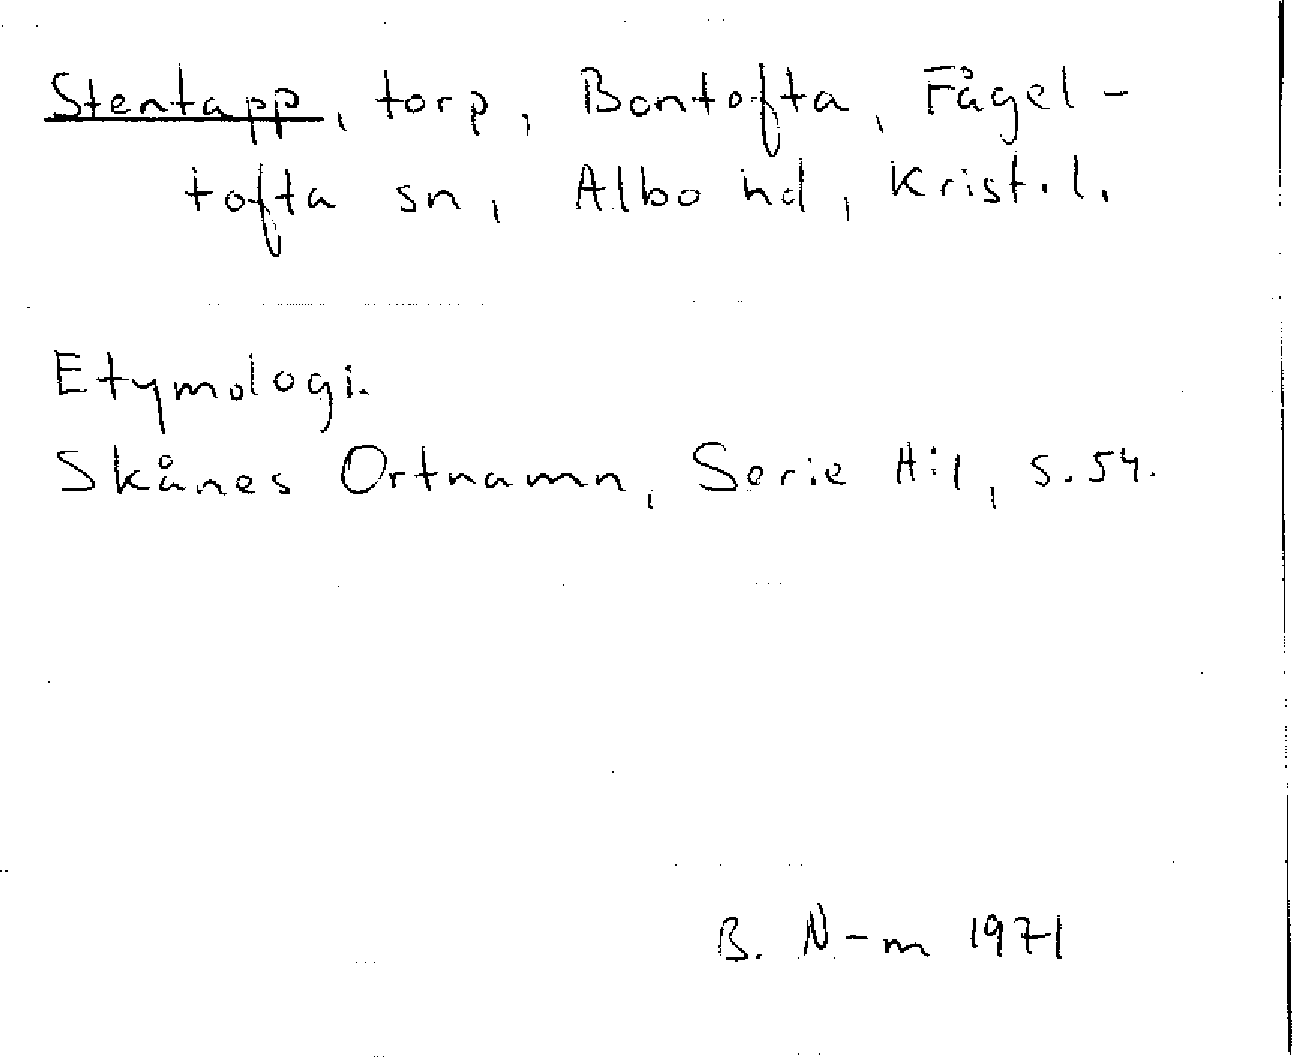 Stentapp, torp, Bontofta, Fågel-
tofta sn, Albo hd, Krist. l.
Etymologi.
Skånes Ortnamn, Serie A:1, s. 54.
B. N-m 1971